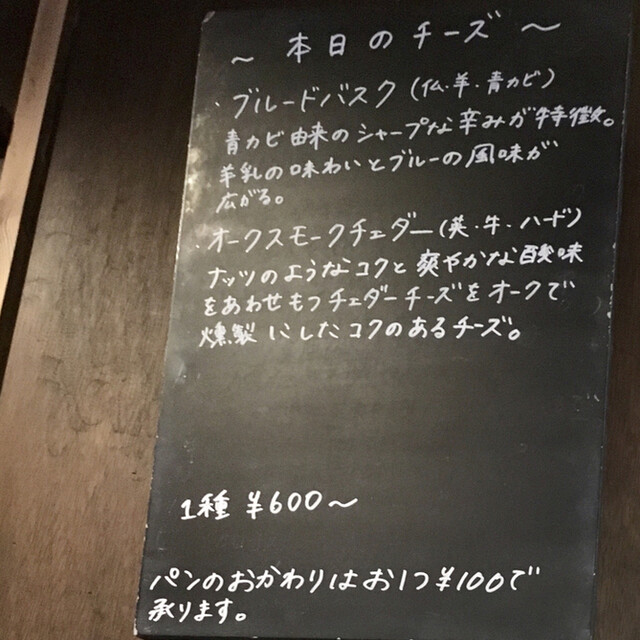 ～ 本日のチーズ ～
・ブルードバスク(仏・羊・青カビ)
青カビ由来のシャープな辛みが特徴。
羊乳の味わいとブルーの風味が
広がる。
・オークスモークチェダー(英・牛・ハード)
ナッツのようなコクと爽やかな酸味
をあわせもつチェダーチーズをオークで
燻製にしたコクのあるチーズ。
1種 ¥600～
パンのおかわりはお1つ¥100で
承ります。